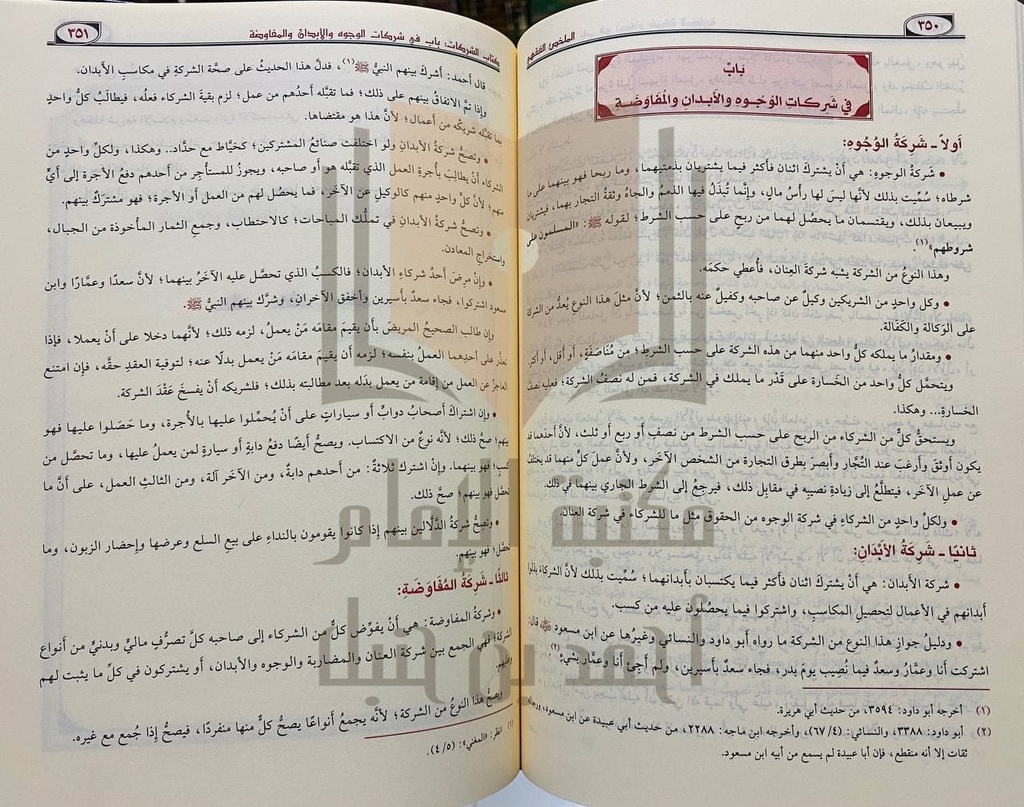 ٣٥٠
الملخص الفقهي
بَابٌ
في شركات الوُجُوهِ والأَبدان والمفَاوَضَةِ
أولاً ـ شَرِكَةُ الوُجُوهِ:
• شركة الوجوه: هي أنْ يشتركَ اثنان فأكثر فيما يشتريان بذمتيهما، وما ربحا فهو بينهما على ما
شرطاه؛ سُمِّيت بذلك لأنَّها ليسَ لها رأسُ مالٍ، وإنَّما تُبذَلُ فيها الذممُ والجاهُ وثقةُ التجار بهما، فيشتريان
ويبيعان بذلك، ويقتسمان ما يحصُل لهما من ربحٍ على حسب الشرط؛ لقوله ﷺ: «المسلمون على
شروطهم»(١).
وهذا النوعُ من الشركة يشبه شركة العِنان، فأُعطي حكمَه.
• وكل واحدٍ من الشريكين وكيلٌ عن صاحبه وكفيلٌ عنه بالثمن؛ لأنَّ مثلَ هذا النوعِ يُعدُّ من الشركة
على الوَكالة والكَفَالة.
• ومقدارُ ما يملكه كلُّ واحد منهما من هذه الشركة على حسب الشرطِ؛ من مُنَاصَفَةٍ، أو أقل، أو أكثر.
ويتحمَّل كلُّ واحد من الخَسارة على قَدْر ما يملك في الشركة، فمن له نصفُ الشركة؛ فعليه نصفُ
الخسارةِ... وهكذا.
ويستحقُّ كلٌّ من الشركاء من الربح على حسب الشرط من نصفٍ أو ربعٍ أو ثلث، لأنَّ أحدَهما قد
يكون أوثقَ وأرغبَ عند التُّجَّار وأبصرَ بطرق التجارة من الشخص الآخَرِ، ولأنَّ عملَ كلٍّ منهما قد يختلفُ
عن عملِ الآخَر، فيتطلَّعُ إلى زيادةِ نصيبِه في مقابِل ذلك، فيرجعُ إلى الشرط الجاري بينهما في ذلك.
• ولكلِّ واحدٍ من الشركاءِ في شركة الوجوه من الحقوق مثل ما للشركاءِ في شركة العنان.
ثانيًا ـ شَرِكَةُ الأَبْدَانِ:
• شركة الأبدان: هي أنْ يشتركَ اثنان فأكثر فيما يكتسبان بأبدانهما؛ سُمِّيت بذلك لأنَّ الشركاءَ بذلوا
أبدانهم في الأعمال لتحصيلِ المكاسبِ، واشتركوا فيما يحصُلون عليه من كسب.
• ودليلُ جوازِ هذا النوع من الشركة ما رواه أبو داود والنسائي وغيرُها عن ابن مسعود قال:
اشتركت أنا وعمَّارُ وسعدٌ فيما نُصِيب يومَ بدر، فجاء سعدٌ بأسيرين، ولم أجِئْ أنا وعمَّار بشيءٍ(٢)
(١) أخرجه أبو داود: ٣٥٩٤، من حديث أبي هريرة.
(٢) أبو داود: ٣٣٨٨، والنسائي: (٦٧/٤)، وأخرجه ابن ماجه: ٢٢٨٨، من حديث أبي عبيدة عن ابن مسعود، ورجاله
ثقات إلا أنه منقطع، فإن أبا عبيدة لم يسمع من أبيه ابن مسعود.
كتاب الشركات: باب في شركات الوجوه والأبدان والمفاوضة
٣٥١
قال أحمد: أشركَ بينهم النبيُّ ﷺ(١)، فدلَّ هذا الحديثُ على صحَّة الشركةِ في مكاسبِ الأبدان.
وإذا تمَّ الاتفاقُ بينهم على ذلك؛ فما تقبَّله أحدُهم من عمل؛ لزم بقيةَ الشركاءِ فعلُه، فيطالَبُ كلُّ واحدٍ
بما تقبَّله شريكُه من أعمال؛ لأنَّ هذا هو مقتضاها.
• وتصحُّ شركةُ الأبدانِ ولو اختلفت صنائعُ المشتركين؛ كخيَّاط مع حدَّاد.. وهكذا، ولكلِّ واحدٍ من
الشركاء أنْ يطالِبَ بأجرةِ العمل الذي تقبَّله هو أو صاحبه، ويجوزُ للمستأجِر من أحدهم دفعُ الأجرةِ إلى أيٍّ
منهم؛ لأنَّ كلَّ واحدٍ منهم كالوكيلِ عن الآخَر، فما يحصُل لهم من العمل أو الأجرة؛ فهو مشتركٌ بينهم.
• وتصحُّ شركةُ الأبدان في تملُّك المباحاتِ؛ كالاحتطاب، وجمعِ الثمار المأخوذة من الجبال،
واستخراجِ المعادن.
• وإن مرضَ أحدُ شركاءِ الأبدان؛ فالكسبُ الذي تحصَّل عليه الآخَرُ بينهما؛ لأنَّ سعدًا وعمَّارًا وابن
مسعود اشتركوا، فجاء سعدٌ بأسيرين وأخفق الآخران، وشرَّك بينهم النبيُّ ﷺ.
وإن طالب الصحيحُ المريضَ بأن يقيمَ مقامَه مَنْ يعملُ، لزمه ذلك؛ لأنَّهما دخلا على أنْ يعملا، فإذا
تعذَّر على أحدهما العملُ بنفسه؛ لزمه أن يقيمَ مقامَه مَنْ يعمل بدلًا عنه؛ لتوفية العقدِ حقَّه، فإن امتنع
العاجزُ عن العمل من إقامة من يعمل بدَله بعد مطالبته بذلك؛ فلشريكه أنْ يفسخَ عَقْدَ الشركة.
• وإن اشتركَ أصحابُ دوابَّ أو سياراتٍ على أنْ يُحمِّلوا عليها بالأجرة، وما حَصَلوا عليها فهو
بينهم؛ صحَّ ذلك؛ لأنَّه نوعٌ من الاكتساب. ويصحُّ أيضًا دفعُ دابةٍ أو سيارةٍ لمن يعملُ عليها، وما تحصَّل من
كسبٍ؛ فهو بينهما. وإنْ اشترك ثلاثةٌ: من أحدهم دابةٌ، ومن الآخر آلة، ومن الثالثِ العمل، على أنَّ ما
تحصَّل فهو بينهم؛ صحَّ ذلك.
• وتصحُّ شركةُ الدَّلالين بينهم إذا كانوا يقومون بالنداءِ على بيعِ السلعِ وعرضِها وإحضارِ الزبون، وما
تحصَّل؛ فهو بينهم.
ثالثًا ـ شَرِكَةُ المُفَاوَضَةِ:
• وشركةُ المفاوضة: هي أنْ يفوِّض كلٌّ من الشركاء إلى صاحبه كلَّ تصرُّفٍ ماليٍّ وبدنيٍّ من أنواع
الشركة؛ فهي الجمع بين شركة العنان والمضاربة والوجوه والأبدان، أو يشتركون في كلِّ ما يثبت لهم
وعليهم.
ويصحُّ هذا النوعُ من الشركة؛ لأنَّه يجمعُ أنواعًا يصحُّ كلٌّ منها منفردًا، فيصحُّ إذا جُمع مع غيره.
(١) انظر: «المغني»: (٤/٥).
مكتبة الإمام
أحمد بن حنبل